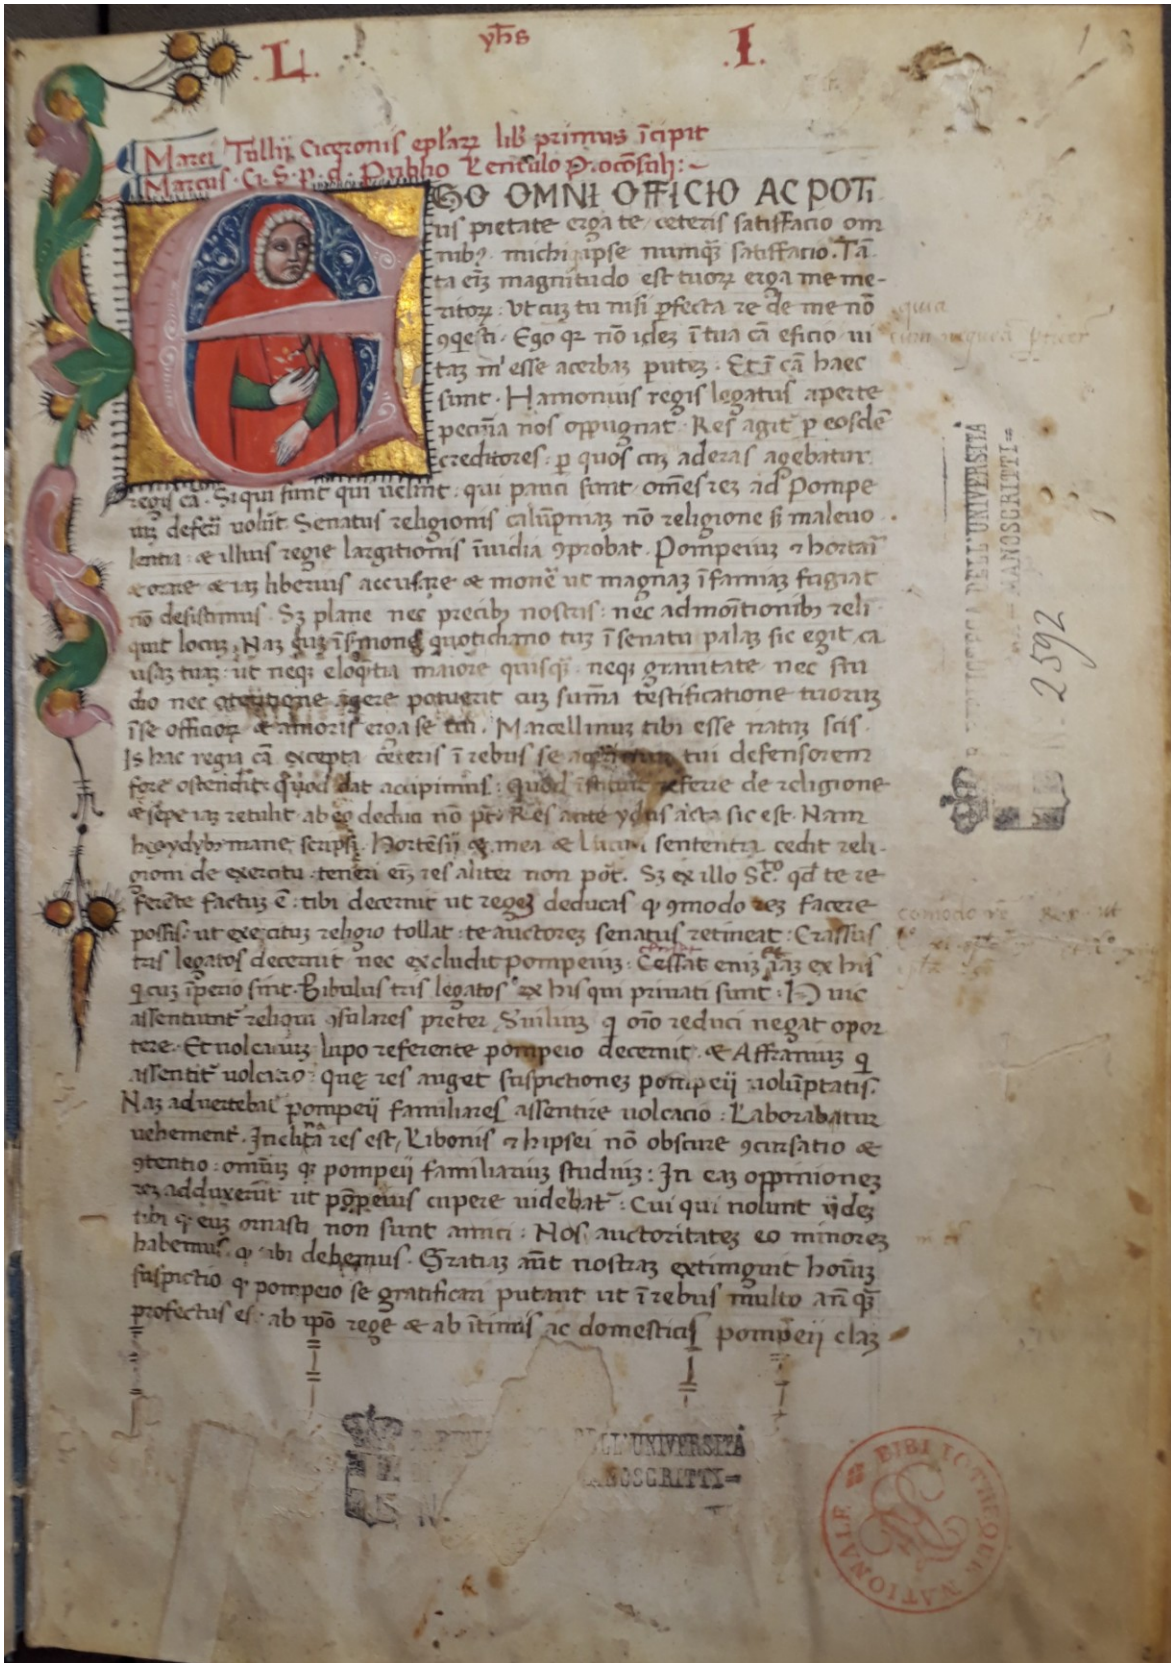 .L. yħs .I.
Marci Tullij Ciceronis eplarꝝ lib primus īcipit
Marcus · Ci · S · p · d · Publio Lentulo Procōsuli :~
EGO OMNI OFFICIO AC POTI
us pietate erga te ceteris satisfacio om
nibꝰ michi ipse numqȝ satisfacio. Tā
ta eīȝ magnitudo est tuorꝝ erga me me-
ritorꝝ : Ut cuȝ tu nisi ꝑfecta re de me nō
ꝯqesti · Ego qꝛ nō ideȝ ī tua cā eficio · ui
taȝ mi esse acerbaȝ puteȝ · Et ī cā haec
sunt · Hamonius regis legatus aperte
pecunia nos oppugnat · Res agit ꝑ eosdē
creditores : ꝑ quos cuȝ aderas agebatur
regis cā · Si qui sunt qui uelint · qui pauci sunt · omēs reȝ ad Pompe
iuȝ deferri uolūt · Senatus religionis calūpniaȝ nō religione sȝ maleuo
lentia · & illius regie largitionis īuidia ꝯprobat · Pompeiuȝ & hortari
& orare & iaȝ liberius accusare & monere ut magnaȝ īfamiaȝ fugiat
nō desistimus · Sȝ plane nec precibȝ nostris : nec admoītionibȝ reli
quit locuȝ. Naȝ cuȝ ī sermone quotidiano tuȝ ī senatu palaȝ sic egit ca
usaȝ tuaȝ : ut neqȝ eloqntia maiore quisqȝ · neqȝ grauitate nec stu
dio nec ꝯtentione agere potuerit cuȝ summa testificatione tuoruȝ
ī se officiorꝝ & amoris erga se tui. Marcellinuȝ tibi esse iratuȝ scis.
Is hac regia cā excepta ceteris ī rebus se acerrimum tui defensorem
fore ostendit : Quod dat accipimus : Quod īstituit referre de religione
& sepe iaȝ retulit · ab eo deduci nō pōt · Res ante ydus acta sic est · Nam
hec ydybȝ mane scripsi. Hortensij & mea & Luculi sententia cedit reli-
gioni de exercitu · teneri eīȝ res aliter non pōt. Sȝ ex illo S.cto qd te re
ferēte factuȝ ē : tibi decernit ut regeȝ deducas qꝫ ꝯmodo reȝ facere
possis : ut exercituȝ religio tollat : te auctoreȝ senatus retineat : Crassus
tris legatos decernit · nec excludit Pompeiuȝ : Cessat eniȝ iaȝ ex his
qi cuȝ īperio sint · Bibulus tris legatos ex his qui priuati sunt · Huic
assentiunt reliqui ꝯsulares preter Suiliuȝ qi oīo reduci negat opor
tere · Et uolcatiuȝ · lupo referente pompeio decernit · & Affraniuȝ qi
assentit uolcatio : que res auget suspictioneȝ pompeij uolūptatis.
Naȝ aduertebat pompeij familiares assentire uolcacio : Laborabatur
uehement. Inclinata res est, Libonis & hipsei nō obscure ꝯcursatio &
ꝯtentio : omniuȝ qꝫ pompeij familiariuȝ studiuȝ : In eaȝ oppinioneȝ
reȝ adduxerūt ut pōpeius cupere uidebat : Cui qui nolunt ijdeȝ
tibi qꝫ euȝ ornasti non sunt amici : Nos auctoritateȝ eo minoreȝ
habemus · qꝫ tibi debemus · Gratiaȝ aūt nostraȝ extinguit homīuȝ
suspictio qꝫ pompeio se gratificari putant ut ī rebus multo an qȝ
profectus es · ab ipō rege & ab ītimis ac domesticis pompeij claȝ
quia
comodo rē
2592
DELL'UNIVERSITÀ
= MANOSCRITTI =
DELL'UNIVERSITÀ
MANOSCRITTI =
N.
BIBLIOTHEQUE NATIONALE